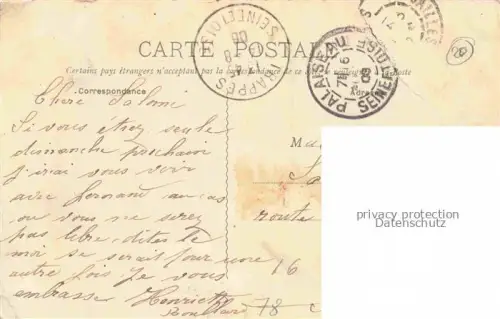 CARTE POSTALE
Certains pays étrangers n'acceptent pas la correspondance de ce côté
Correspondance
TRAPPES
SEINE-ET-OISE
PALAISEAU
SEINE-ET-OISE
Chère
Si vous étiez seule
dimanche prochain
j'irai vous voir
avec Fernand au cas
ou vous ne serez
pas libre, dites le
moi se serait pour une
autre fois Je vous
embrasse Henriette
route
16
78
privacy protection
Datenschutz